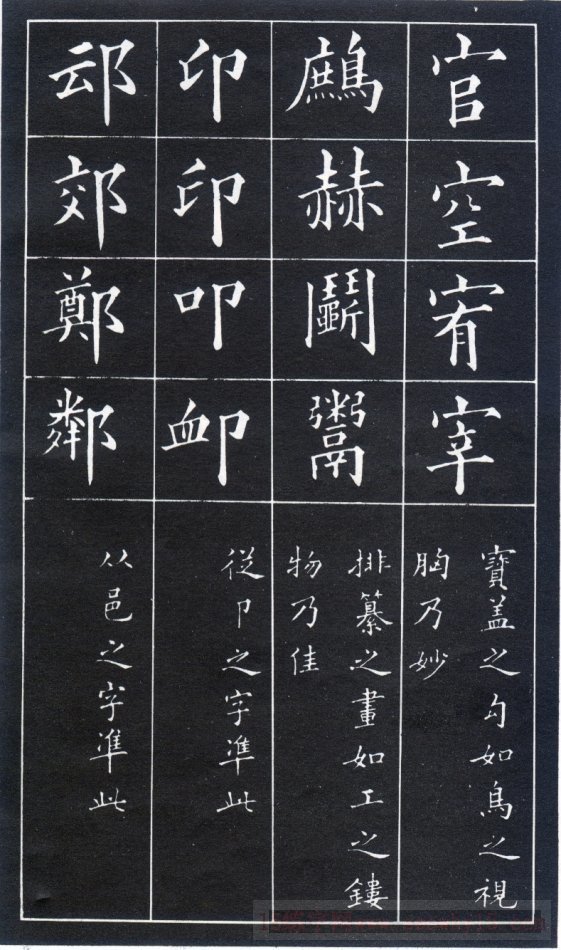 官空宥宰
寶盖之勾如鳥之視
胸乃妙
鷓赫鬭鬻
排纂之畫如工之鏤
物乃佳
印印叩卹
從卩之字準此
邧郊鄭鄰
从邑之字準此